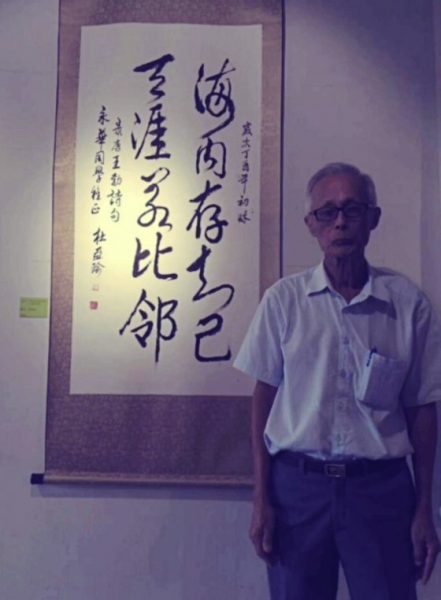 歲次丁酉年初秋
海内存知己
天涯若比邻
录唐王勃詩句
永華同學雅正 杜亞瑜